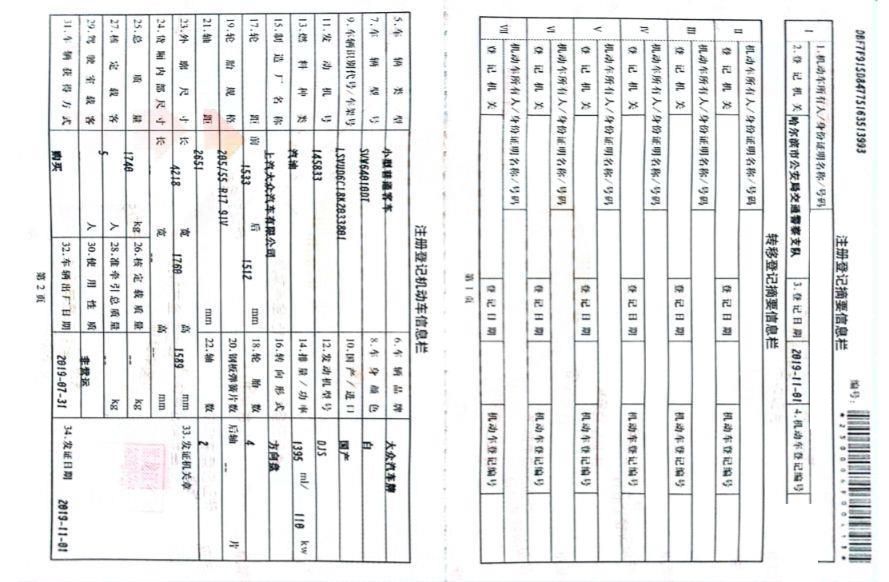 DBF7F915D847751635139​93
注册登记摘要信息栏
编号:
I
1.机动车所有人/身份证明名称/号码
2.登记机关 哈尔滨市公安局交通警察支队 3.登记日期 2019-11-01 4.机动车登记编号
转移登记摘要信息栏
II 机动车所有人/身份证明名称/号码
登记机关 登记日期 机动车登记编号
III 机动车所有人/身份证明名称/号码
登记机关 登记日期 机动车登记编号
IV 机动车所有人/身份证明名称/号码
登记机关 登记日期 机动车登记编号
V 机动车所有人/身份证明名称/号码
登记机关 登记日期 机动车登记编号
VI 机动车所有人/身份证明名称/号码
登记机关 登记日期 机动车登记编号
VII 机动车所有人/身份证明名称/号码
登记机关 登记日期 机动车登记编号
第1页
注册登记机动车信息栏
5.车辆类型 小型普通客车 6.车辆品牌 大众汽车牌
7.车辆型号 SVW6401BDT 8.车身颜色 白
9.车辆识别代号/车架号 LSVUD6C18K2033801 10.国产/进口 国产
11.发动机号 145833 12.发动机型号 DJS
13.燃料种类 汽油 14.排量/功率 1395 ml/ 110 kw
15.制造厂名称 上汽大众汽车有限公司 16.转向形式 方向盘
17.轮距 前 1533 后 1512 mm 18.轮胎数 4
19.轮胎规格 205/55 R17 91V 20.钢板弹簧片数 后轴 -- 片
21.轴距 2651 mm 22.轴数 2
23.外廓尺寸 长 4218 宽 1760 高 1589 mm 33.发证机关章
24.货厢内部尺寸 长 -- 宽 -- 高 -- mm
25.总质量 1740 kg 26.核定载质量 -- kg
27.核定载客 5 人 28.准牵引总质量 -- kg
29.驾驶室载客 人 30.使用性质 非营运
31.车辆获得方式 购买 32.车辆出厂日期 2019-07-31 34.发证日期 2019-11-01
第2页